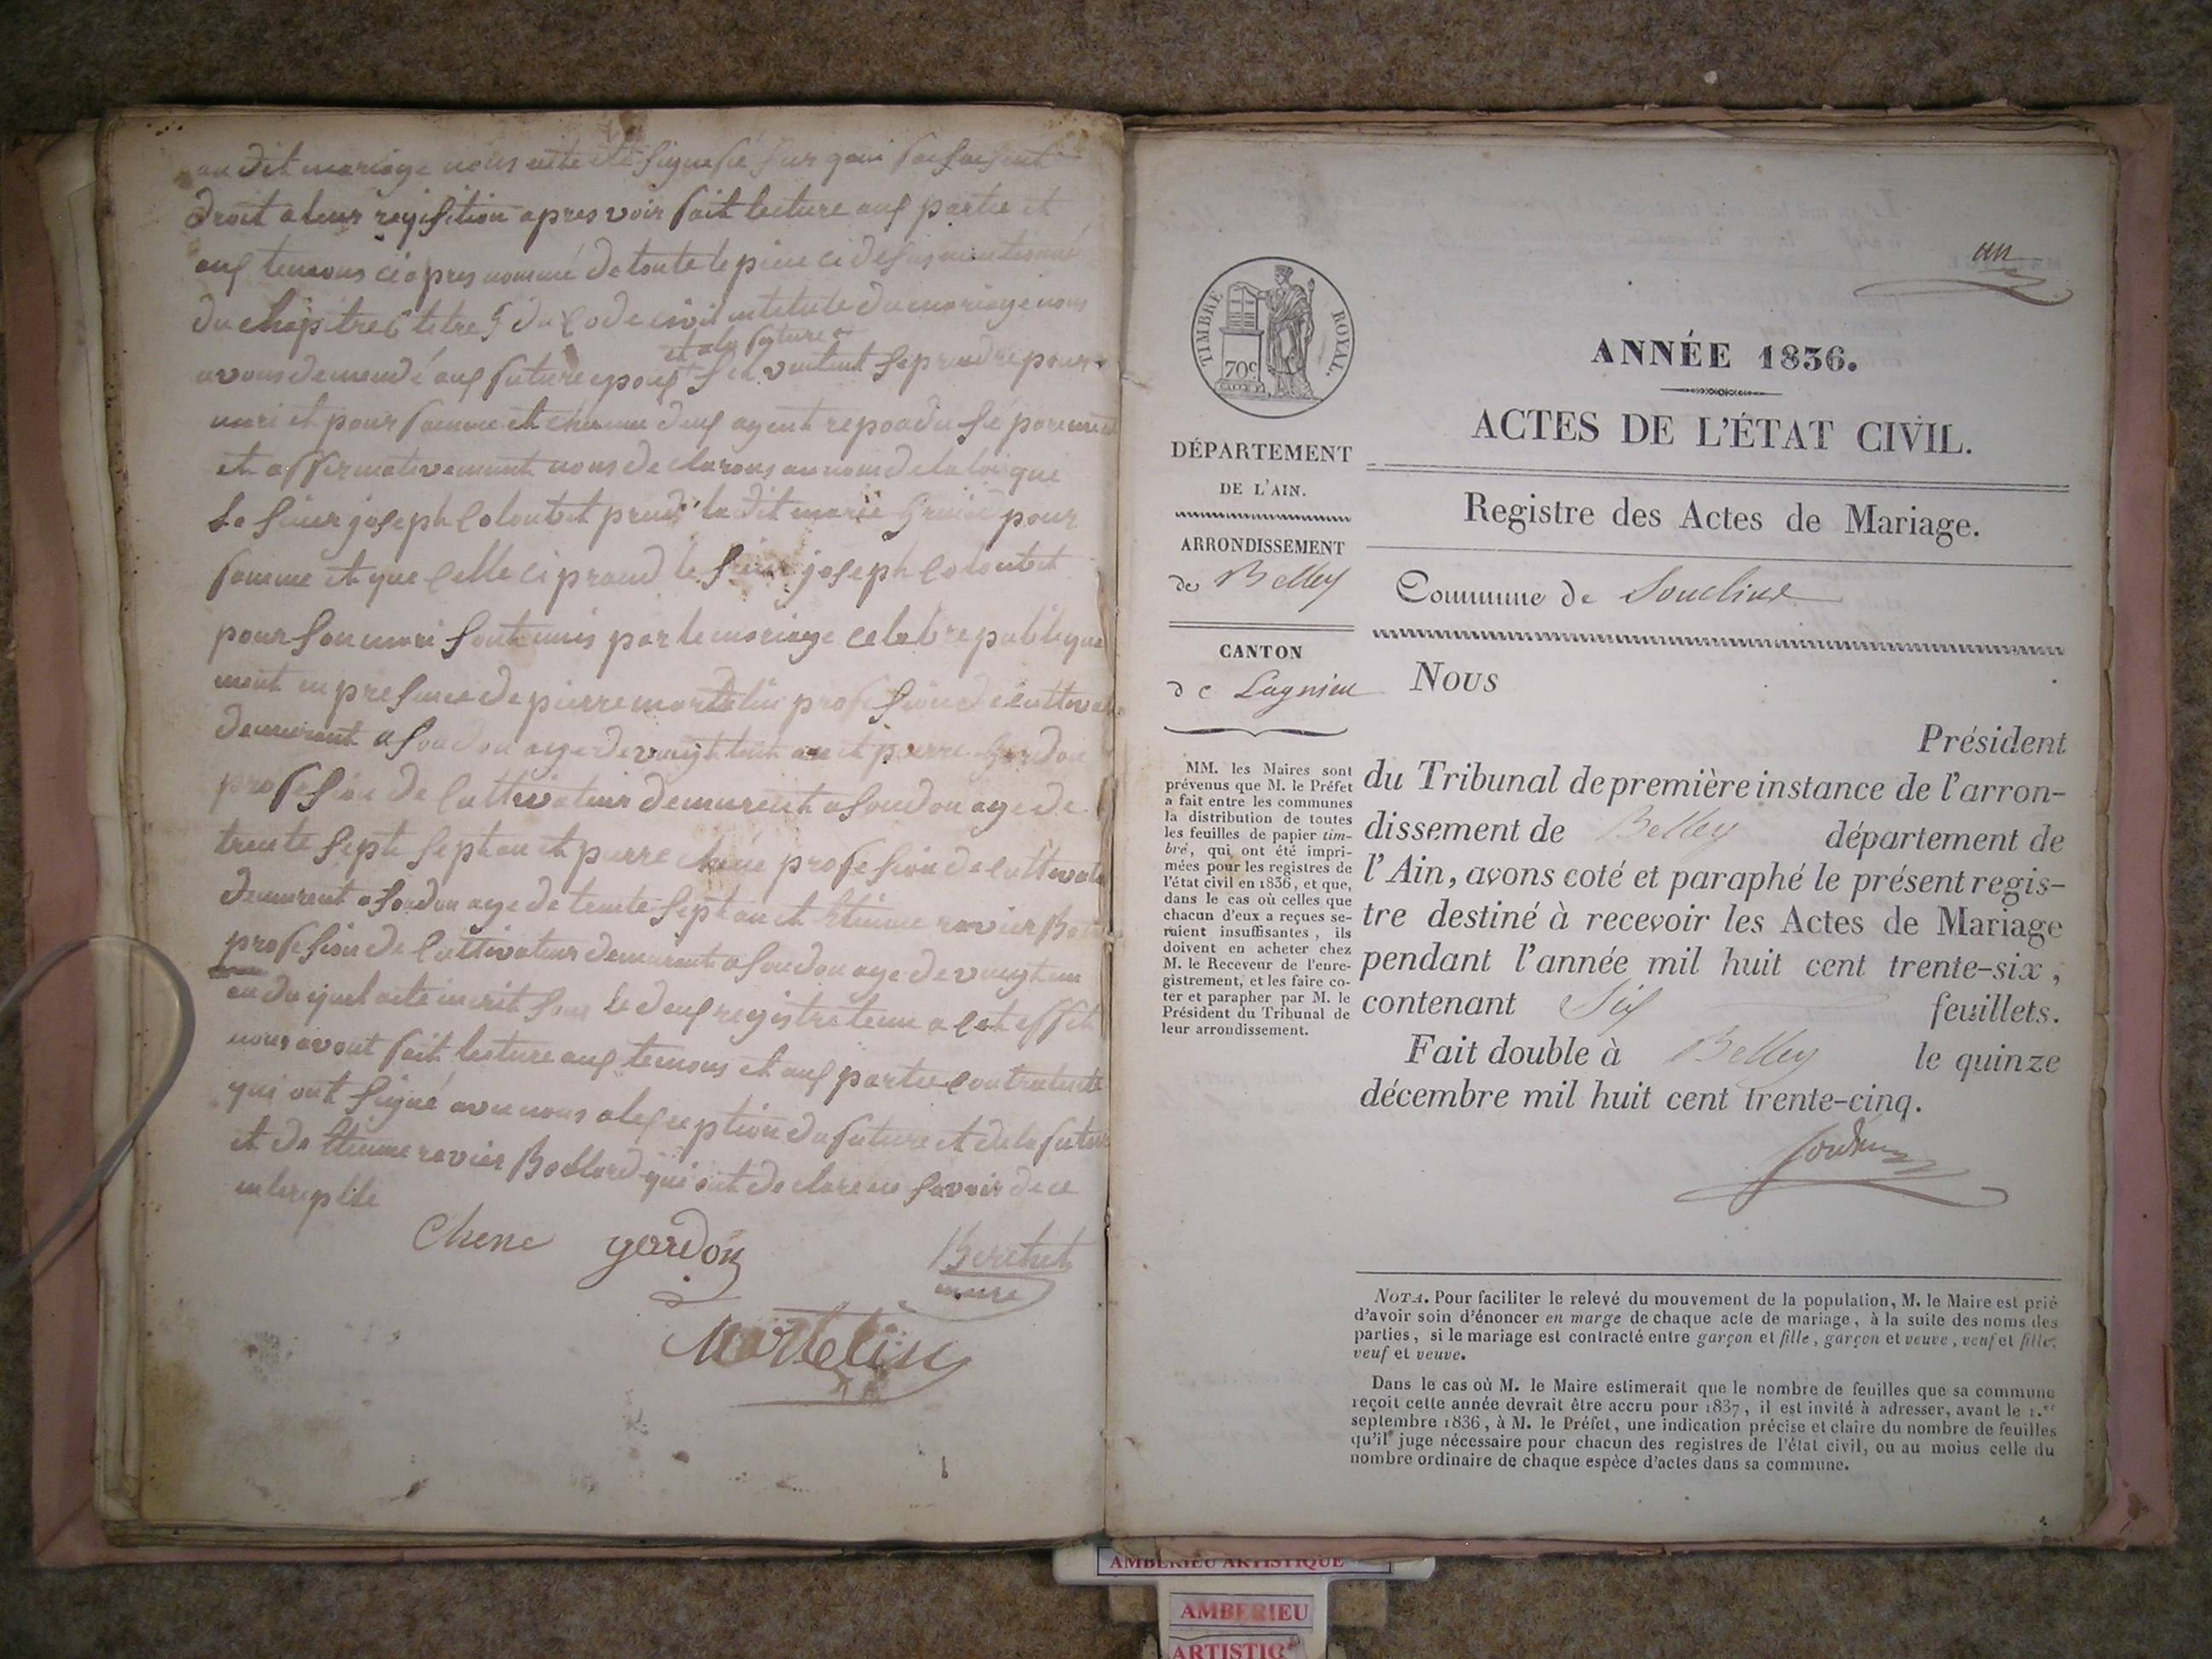 au dit mariage nous
droit a leur reqisition apres voir fait lecture aux partie et
aux temons ci apres nommé de toute le piece ci desus mentionné
du chapitre 6 titre 5 du Code civil intitule du mariage nous
et ala future
avons demendé aux future epoux sil veulent se prendre pour
mari et pour famme et chacun deux ayent repondu separement
et affirmativemant nous declarons au nom de la loi que
le sieur joseph Colontet prend la dit marie pour
famme et que Celle ci prand le sieur joseph Colontet
pour son mari sont unis par le mariage celebre publique
ment en presence de pierre martelin profesion de Cultivat
demeurant a soudon age de vingt huit an et pierre gordon
profesion de Cultivateur demeurent a soudon age de
trente sept sept an et pierre chene profesion de Cultivat
demeurent a soudon age de trente sept an et Etienne ravier
profesion de Cultivateur demeurent a soudon age de vingt un
an du quel acte inscrit sur le deux registre tenu a Cet effet
nous avont fait lecture aux temons et aux partie Contratente
qui ont signé avec nous a lexception du future et dela future
et de Etienne ravier Bollard qui ont declare ne savoir de ce
enterpelle
Chene gordon
maire
Martelin
un
TIMBRE ROYAL.
70c
ANNÉE 1836.
ACTES DE L'ÉTAT CIVIL.
Registre des Actes de Mariage.
DÉPARTEMENT
DE L'AIN.
ARRONDISSEMENT
de Belley
CANTON
de Lagnieu
Commune de Souclin
MM. les Maires sont
prévenus que M. le Préfet
a fait entre les communes
la distribution de toutes
les feuilles de papier tim-
bré, qui ont été impri-
mées pour les registres de
l'état civil en 1836, et que,
dans le cas où celles que
chacun d'eux a reçues se-
raient insuffisantes, ils
doivent en acheter chez
M. le Receveur de l'enre-
gistrement, et les faire co-
ter et parapher par M. le
Président du Tribunal de
leur arrondissement.
Nous
Président
du Tribunal de première instance de l'arron-
dissement de Belley département de
l'Ain, avons coté et paraphé le présent regis-
tre destiné à recevoir les Actes de Mariage
pendant l'année mil huit cent trente-six,
contenant Six feuillets.
Fait double à Belley le quinze
décembre mil huit cent trente-cinq.
NOTA. Pour faciliter le relevé du mouvement de la population, M. le Maire est prié
d'avoir soin d'énoncer en marge de chaque acte de mariage, à la suite des noms des
parties, si le mariage est contracté entre garçon et fille, garçon et veuve, veuf et fille,
veuf et veuve.
Dans le cas où M. le Maire estimerait que le nombre de feuilles que sa commune
reçoit cette année devrait être accru pour 1837, il est invité à adresser, avant le 1.er
septembre 1836, à M. le Préfet, une indication précise et claire du nombre de feuilles
qu'il juge nécessaire pour chacun des registres de l'état civil, ou au moins celle du
nombre ordinaire de chaque espèce d'actes dans sa commune.
AMBERIEU ARTISTIQUE
AMBERIEU
ARTISTIQ